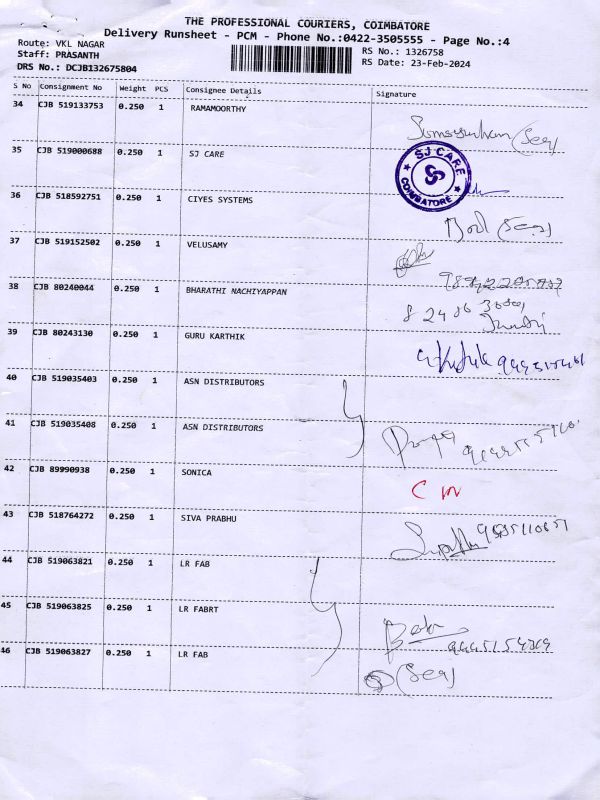 THE PROFESSIONAL COURIERS, COIMBATORE
Delivery Runsheet - PCM - Phone No.:0422-3505555 - Page No.:4
Route: VKL NAGAR
RS No.: 1326758
Staff: PRASANTH
RS Date: 23-Feb-2024
DRS No.: DCJB132675804
S No Consignment No Weight PCS Consignee Details Signature
34 CJB 519133753 0.250 1 RAMAMOORTHY
(Sea)
35 CJB 519000688 0.250 1 SJ CARE
SJ CARE
COIMBATORE
36 CJB 518592751 0.250 1 CIYES SYSTEMS
(Sea)
37 CJB 519152502 0.250 1 VELUSAMY
38 CJB 80240044 0.250 1 BHARATHI NACHIYAPPAN
39 CJB 80243130 0.250 1 GURU KARTHIK
40 CJB 519035403 0.250 1 ASN DISTRIBUTORS
41 CJB 519035408 0.250 1 ASN DISTRIBUTORS
42 CJB 89990938 0.250 1 SONICA
43 CJB 518764272 0.250 1 SIVA PRABHU
44 CJB 519063821 0.250 1 LR FAB
45 CJB 519063825 0.250 1 LR FABRT
46 CJB 519063827 0.250 1 LR FAB
(Sea)